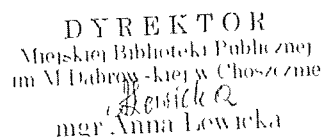 DYREKTOR
Miejskiej Biblioteki Publicznej
im M Dąbrowskiej w Choszcznie
Lewicka
mgr Anna Lewicka